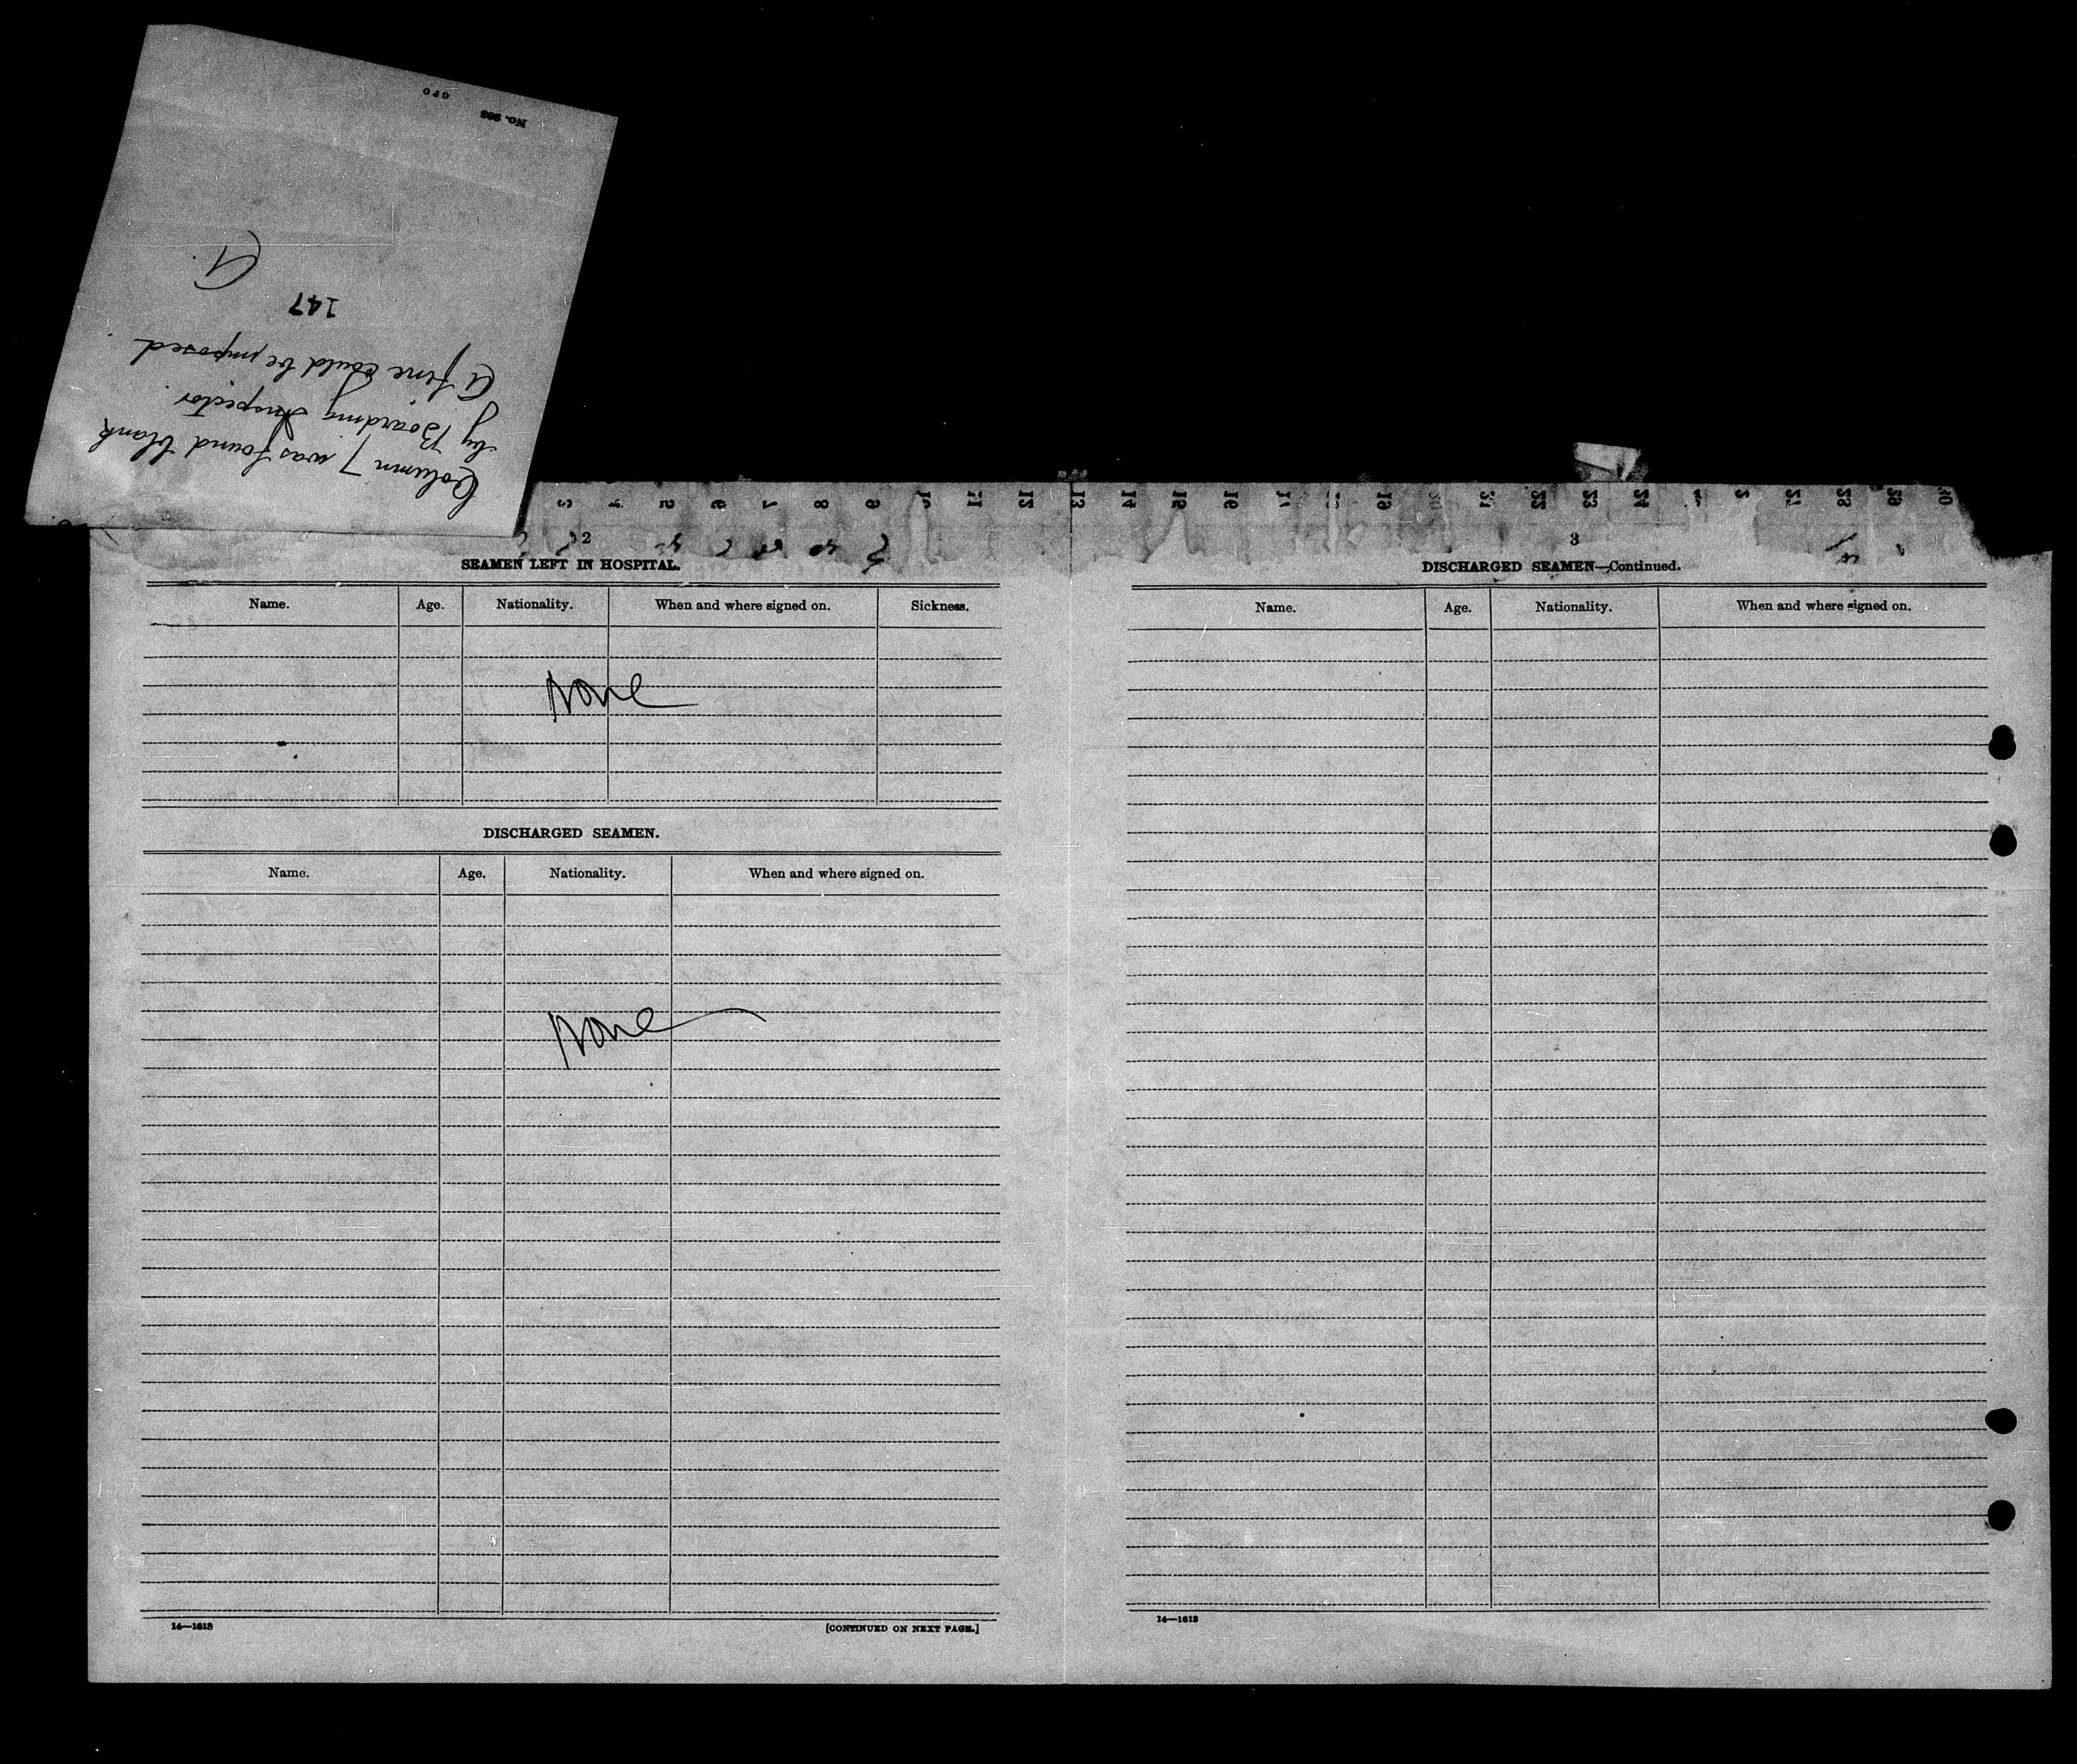 Column 7 was found blank
by Boarding Inspector
A fine could be imposed
147
No. 263
GPO
3 4 5 6 7 8 9 10 11 12 13 14 15 16 17 19 21 22 23 24 27 28 29 30
2
SEAMEN LEFT IN HOSPITAL.
Name. Age. Nationality. When and where signed on. Sickness.
None
DISCHARGED SEAMEN.
Name. Age. Nationality. When and where signed on.
None
14—1613
[CONTINUED ON NEXT PAGE.]
3
DISCHARGED SEAMEN—Continued.
Name. Age. Nationality. When and where signed on.
14—1613